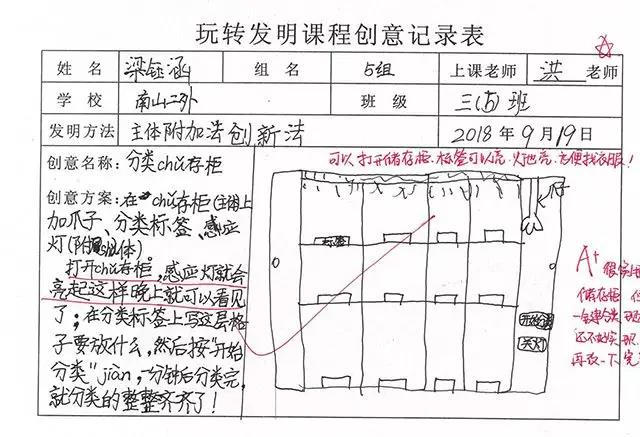 玩转发明课程创意记录表
姓名 梁钰涵 组名 5组 上课老师 洪 老师
学校 南山二外 班级 三(5)班
发明方法 主体附加法创新法 2018年9月19日
创意名称:分类chǔ存柜
可以打开储存柜,标签可以亮,灯也亮,方便找衣服!
创意方案:在chǔ存柜(主体)上
加爪子、分类标签、感应
灯(附加体)
打开chǔ存柜,感应灯就会
亮起这样晚上就可以看见
了;在分类标签上写这层格
子要放什么,然后按"开始
分类"jiàn,一分钟后分类完,
就分类的整整齐齐了!
标签
爪子
开始分类
关灯
A+
储存柜
一键分类
还不好实现
再改一下